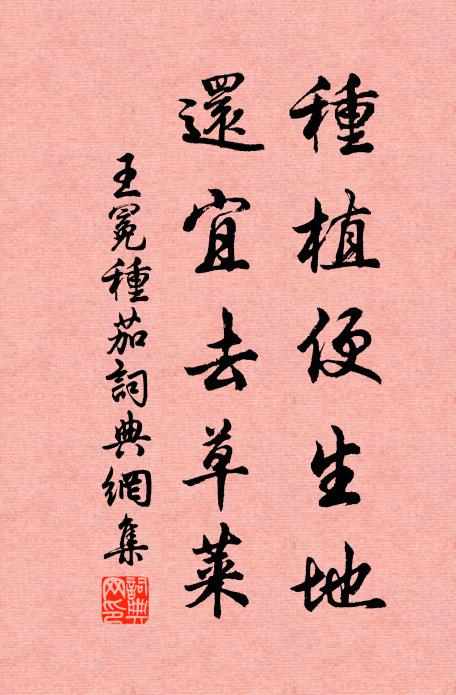 種植便生地
還宜去草萊
王冕種茄詞典網集
詞典網印